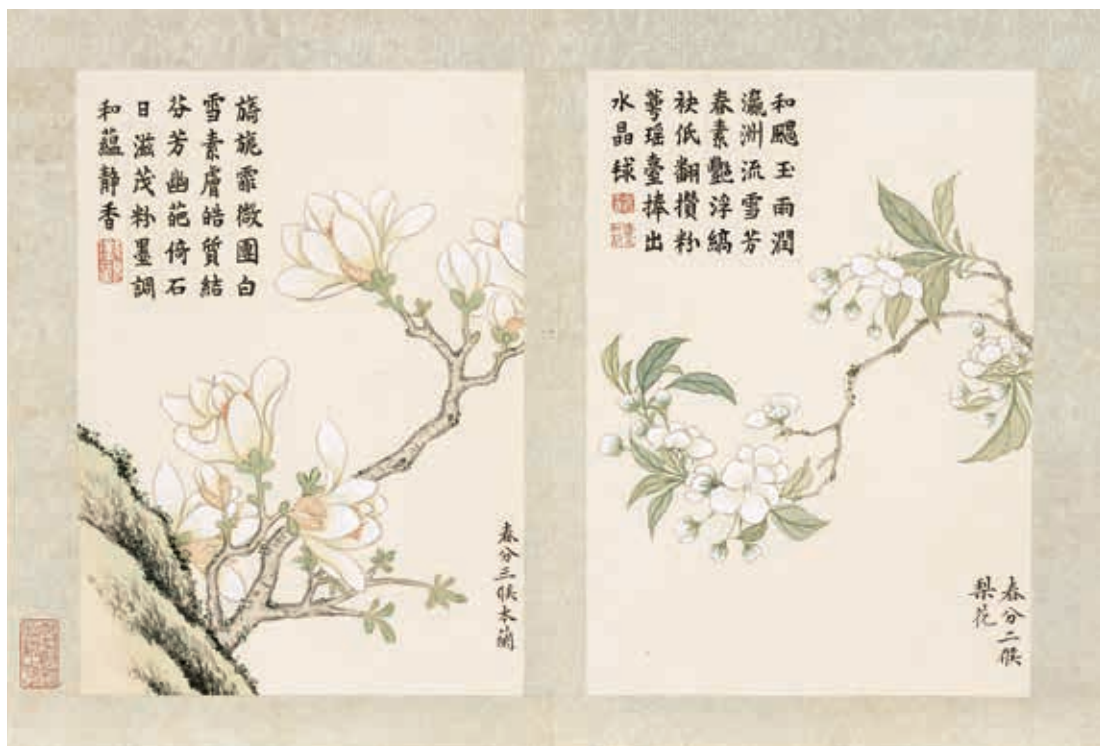 和颸玉雨潤
瀛洲流雪芳
春素艷浮縞
袂低翻攢粉
蕚瑶臺捧出
水晶毬
春分二候
梨花
旖旎霏微團白
雪素膚皓質結
芬芳幽葩倚石
日滋茂粉墨調
和蘊静香
春分三候木蘭